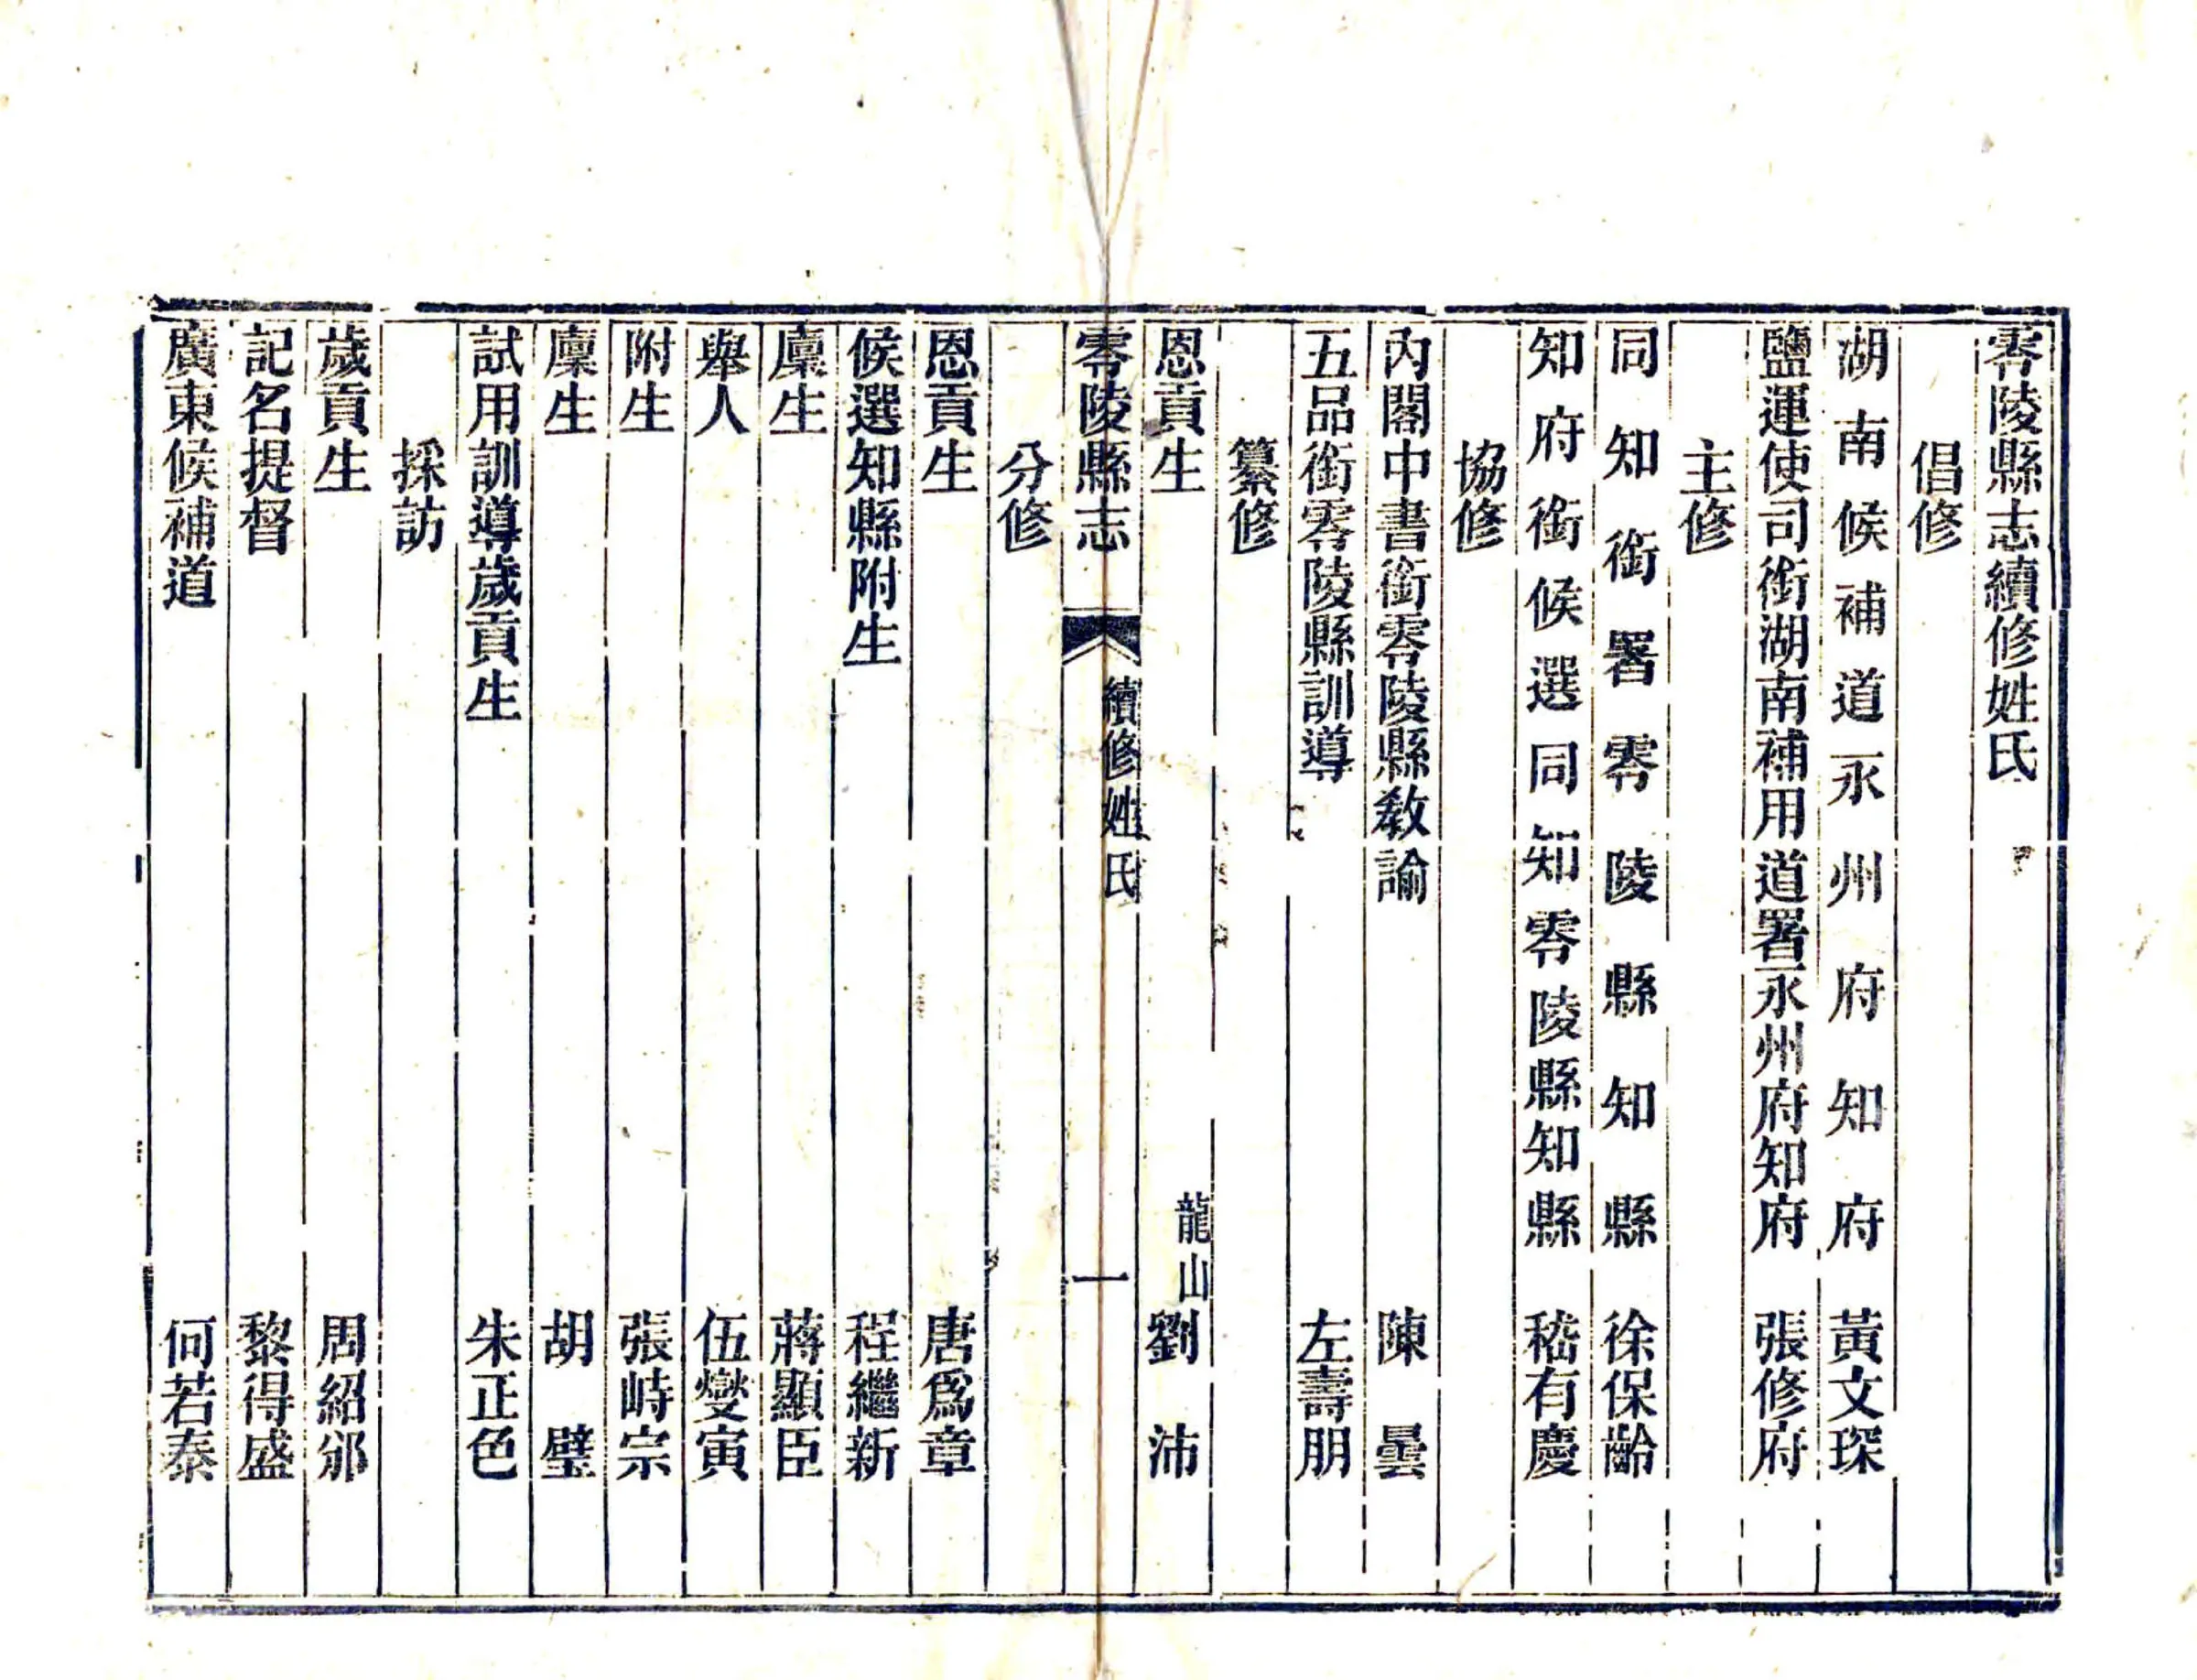 零陵縣志續修姓氏
倡修
湖南候補道永州府知府 黃文琛
鹽運使司銜湖南補用道署永州府知府 張修府
主修
同知銜署零陵縣知縣 徐保齡
知府銜候選同知零陵縣知縣 嵇有慶
協修
內閣中書銜零陵縣教諭 陳曇
五品銜零陵縣訓導 左壽朋
纂修
恩貢生 龍山劉沛
零陵縣志 續修姓氏 一
分修
恩貢生 唐爲章
候選知縣附生 程繼新
廩生 蔣顯臣
舉人 伍燮寅
附生 張峙宗
廩生 胡璧
試用訓導歲貢生 朱正色
採訪
歲貢生 周紹邠
記名提督 黎得盛
廣東候補道 何若泰